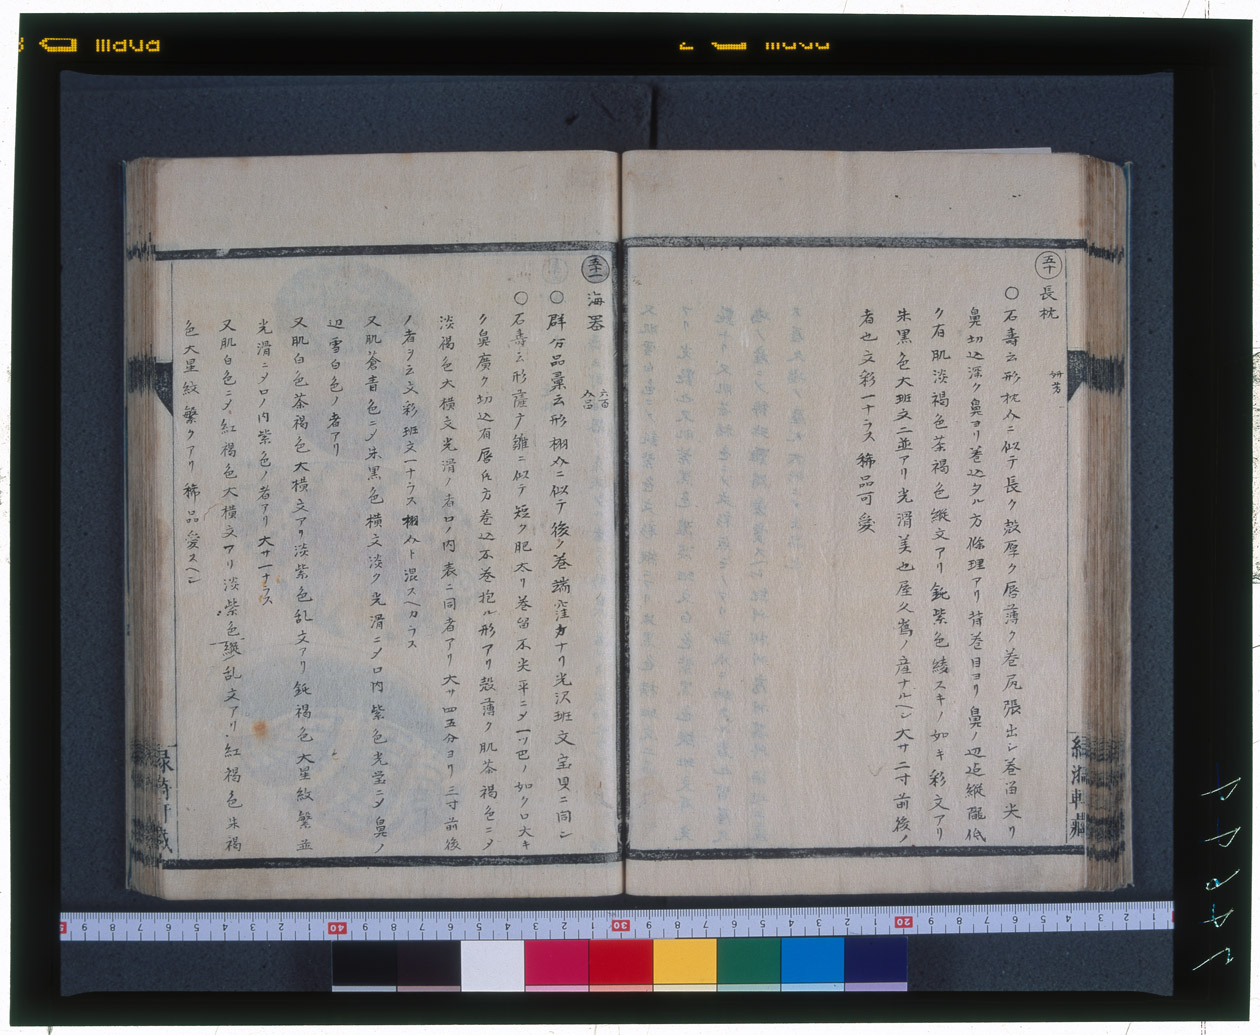 五十 長枕
○石壽云形枕介ニ似テ長ク殻厚ク唇薄ク巻尻張出シ巻留尖リ
鼻切込深ク鼻ヨリ巻込タル方條理アリ背巻目ヨリ鼻ノ辺迄縦
ク有肌淡褐色茶褐色縦文アリ鈍紫色綾スキノ如キ彩文アリ
朱黒色大斑文二並アリ光滑美也屋久嶌ノ産ナルヘシ大サ二寸前後ノ
者也文彩一ナラス稀品可愛
五十一 海罌 六百
○群分品彙云形栩介ニ似テ後ノ巻端窪カナリ光沢斑文宝貝ニ同シ
○石壽云形 ニ似テ短ク肥太リ巻留不尖平ニメ一ツ巴ノ如ク口大キ
ク鼻廣ク切込有唇片方巻込不巻抱ル形アリ殻薄ク肌茶褐色ニメ
淡褐色大横文光滑ノ者口ノ内表ニ同者アリ大サ四五分ヨリ三寸前後
ノ者ヲ云文彩斑文一ナラス栩介ト混スヘカラス
又肌蒼青色ニメ朱黒色横文淡ク光滑ニメ口内紫色光瑩ニメ鼻ノ
辺雪白色ノ者アリ
又肌白色茶褐色大横文アリ淡紫色乱文アリ鈍褐色大星紋繋並
光滑ニメ口ノ内紫色ノ者アリ大サ一ナラス
又肌白色ニメ紅褐色大横文アリ淡紫色縦乱文アリ紅褐色朱褐
色大星紋繁クアリ稀品愛スヘシ